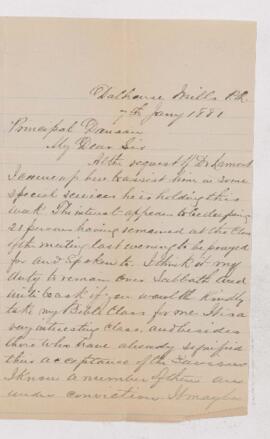 Dalhousie Mills P.Q.
7th Jany 1881
Principal Dawson
My Dear Sir
At the request of Dr Lamont
I came up here to assist him in some
special services he is holding this
week. The interest appears to be deepening
22 persons having remained at the close
of the meeting last evening to be prayed
for and spoken to. I think it my
duty to remain over Sabbath and
write to ask if you would kindly
take my Bible Class for me. It is a
very interesting class, and besides
those who have already signified
their acceptance of the Saviour
I know a number of there are
under conviction. It may be